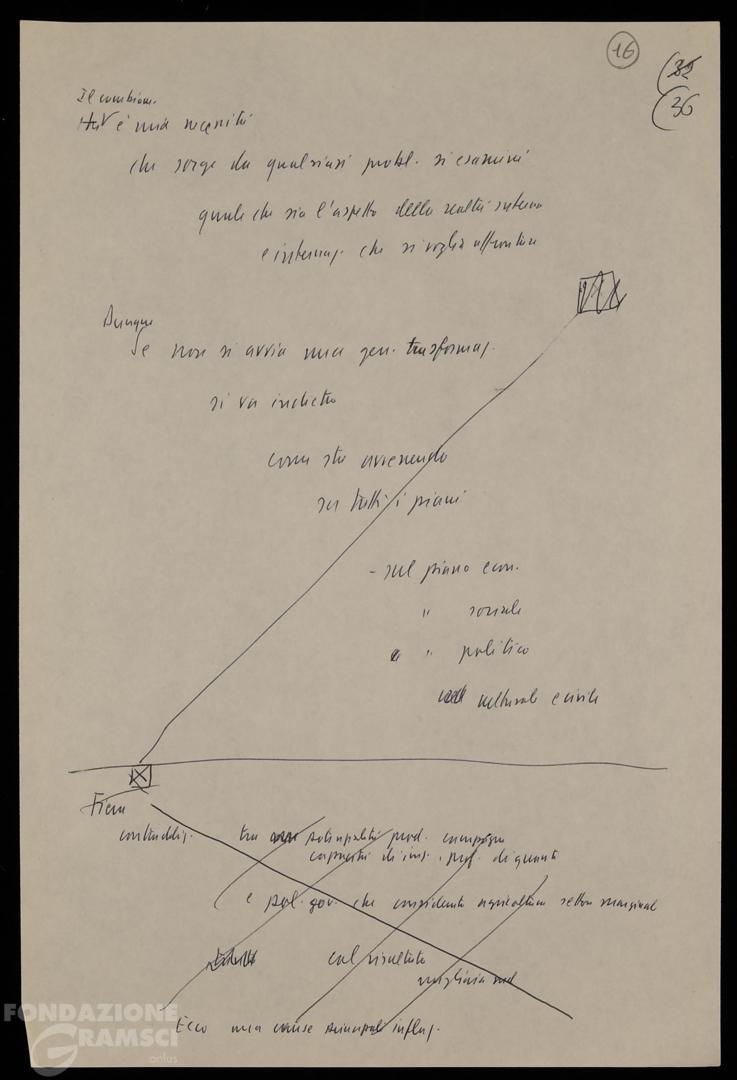 16
(32
(36
Il cambiam.
è una necessità
che sorge da qualsiasi probl. si esamini
quale che sia l'aspetto della realtà interna
e internaz. che si voglia affrontare
Dunque
Se non si avvia una gen. trasformaz.
si va indietro
come sta avvenendo
su tutti i piani
- sul piano econ.
" sociale
e " politico
culturale e civile
Fiera
contraddiz. tra potenzialità prod. campagna
capacità di inv. prof. di quanti
( e pol. gov. che considerata agricoltura settore marginale
col risultato
Ecco una cause principali inflaz.
FONDAZIONE
GRAMSCI
onlus